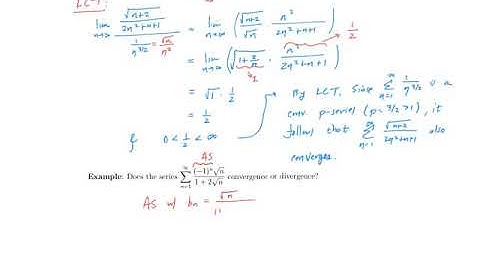 LCT:
lim n→∞ (√(n+2) / (2n²+n+1)) / (1/n^(3/2) = √n/n²) = lim n→∞ (√(n+2)/√n · n²/(2n²+n+1)) 1/2
= lim n→∞ (√(1+2/n) · n²/(2n²+n+1))
↳1
= √1 · 1/2
= 1/2
& 0 < 1/2 < ∞
By LCT, since ∑_{n=1}^∞ 1/n^(3/2) is a
conv. p-series (p = 3/2 > 1), it
follows that ∑_{n=1}^∞ √(n+2)/(2n²+n+1) also
converges.
AS
Example: Does the series ∑_{n=1}^∞ (-1)^n √n / (1 + 2√n) convergence or divergence?
AS w/ bn = √n